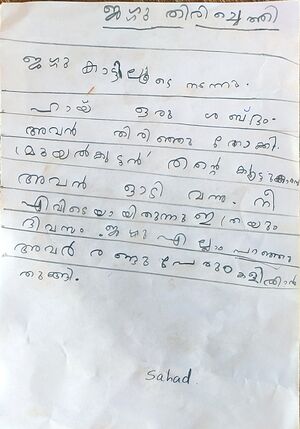 ജഗ്ഗു തിരിച്ചെത്തി
ജഗ്ഗു കാട്ടിലൂടെ നടന്നു.
ഹായ് ഒരു ശബ്ദം.
അവൻ തിരിഞ്ഞു നോക്കി.
മുയൽകുട്ടൻ തൻ്റെ കൂട്ടുകാരൻ
അവൻ ഓടി വന്നു. നീ
എവിടെയായിരുന്നു ഇത്രയും
ദിവസം. ജഗ്ഗു എല്ലാം പറഞ്ഞു
അവർ രണ്ടുപേരും കളിക്കാൻ
തുടങ്ങി.
Sahad.